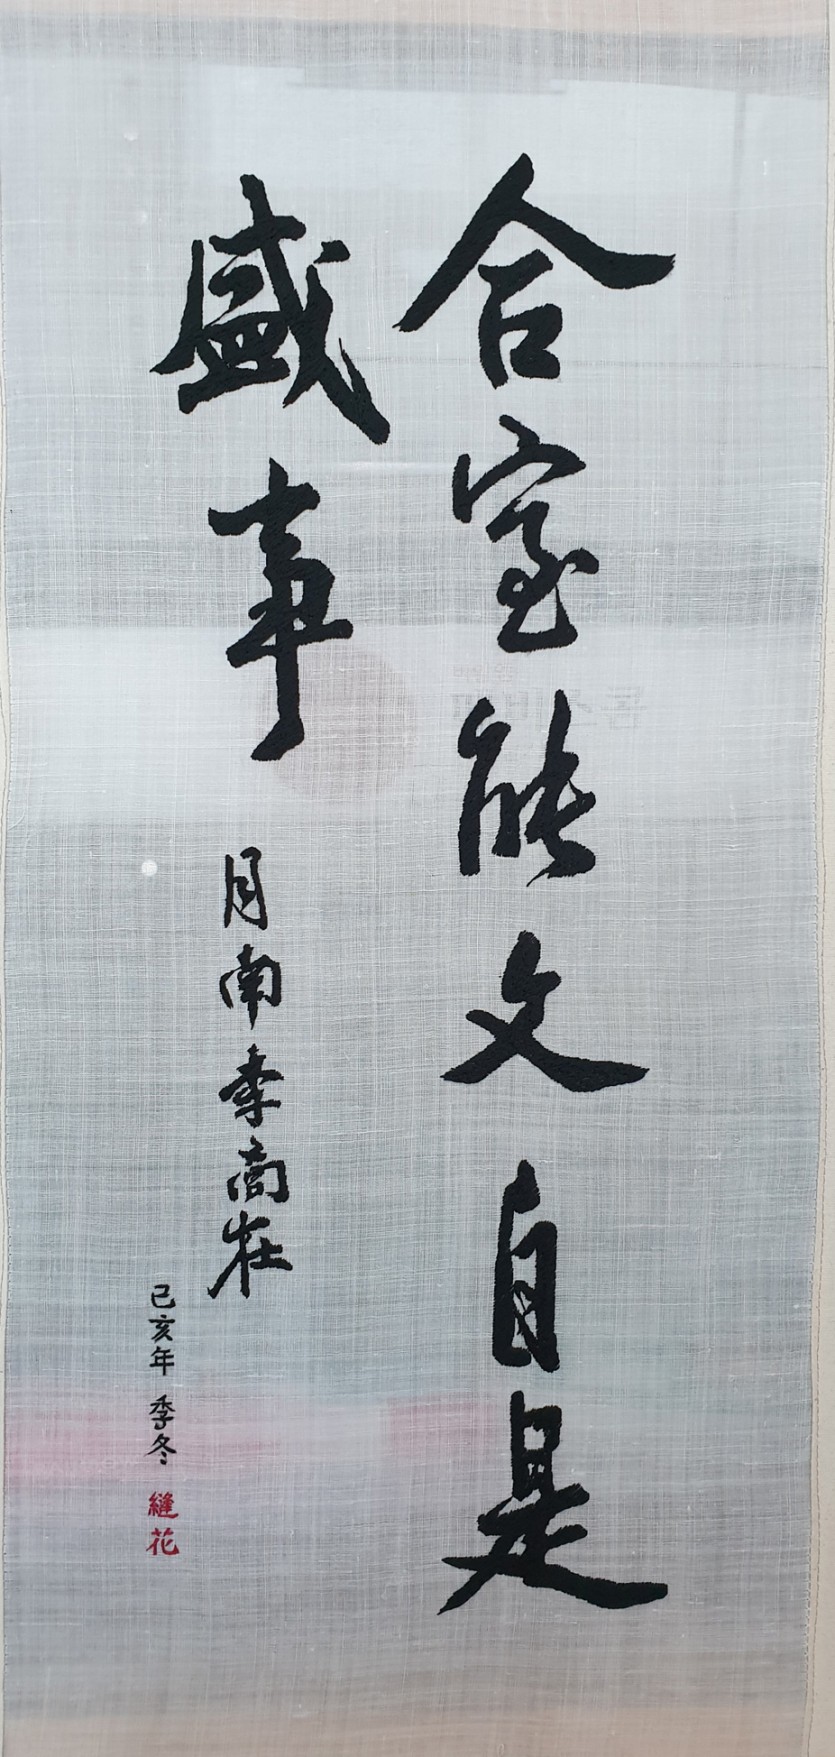 合室能文自是
盛事
月南李商在
己亥年 季冬 縫花